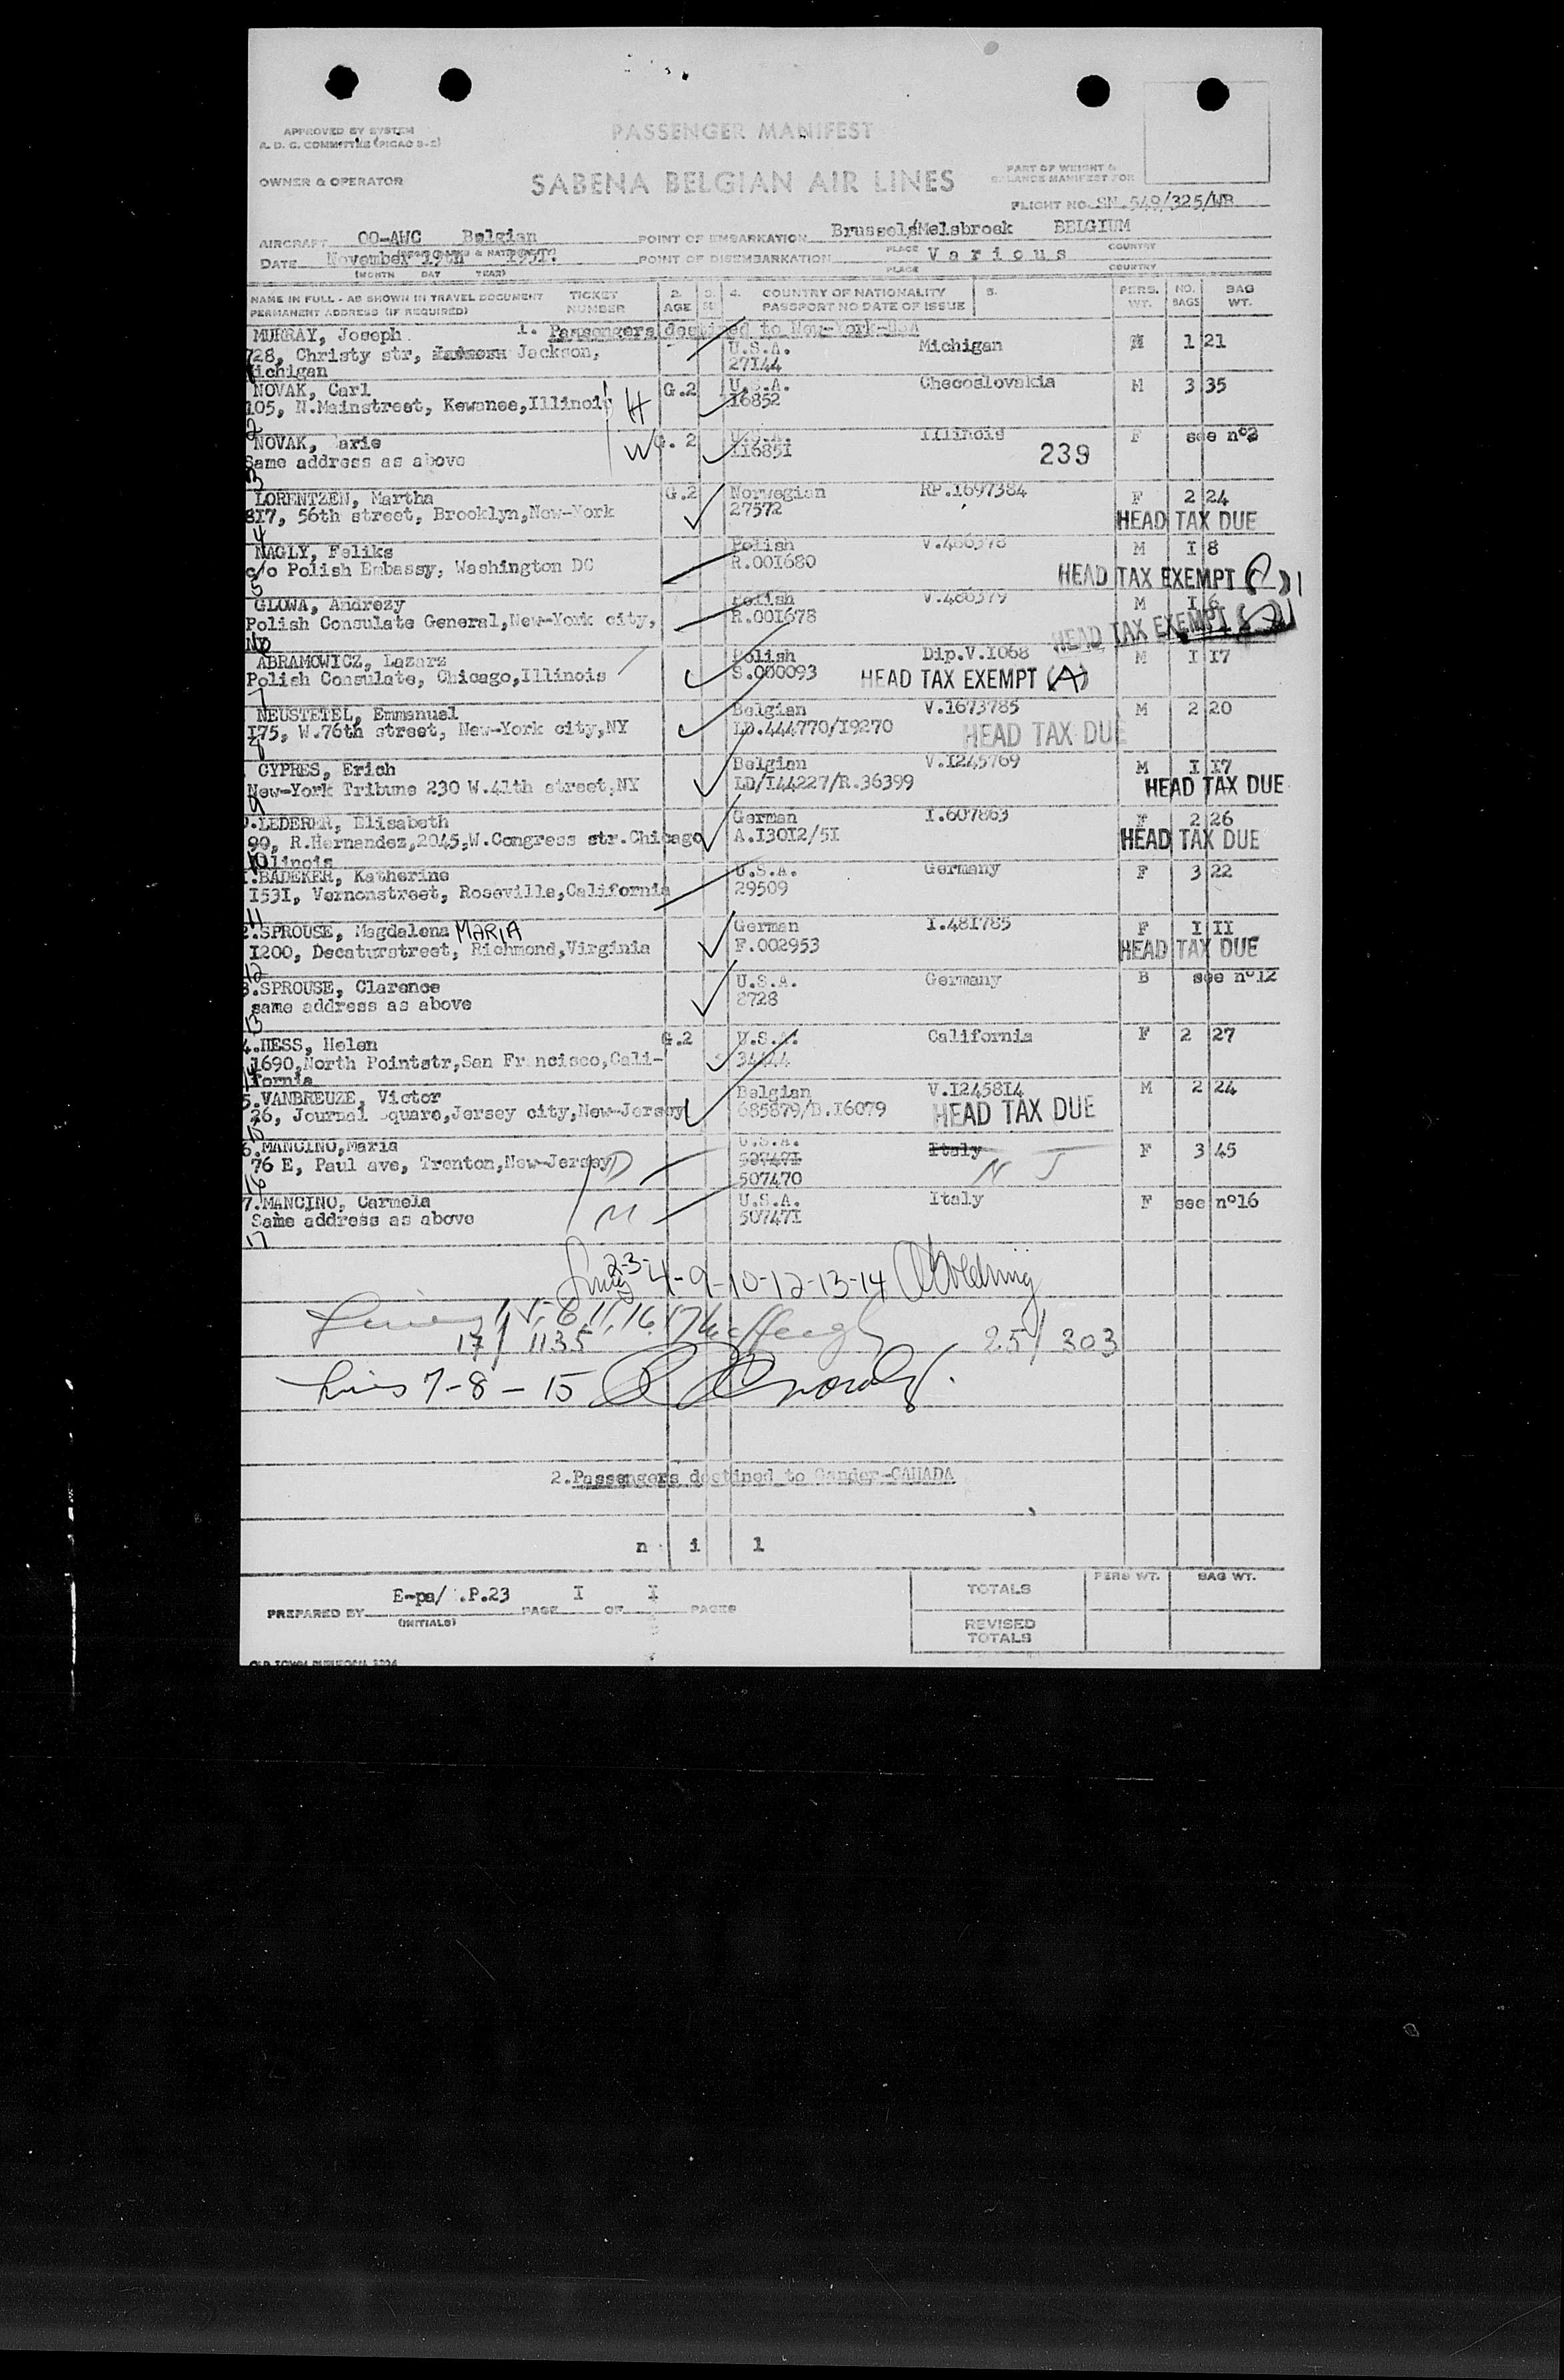 APPROVED BY SYSTEM
A. D. C. COMMITTEE (PICAO 9-2)
PASSENGER MANIFEST
OWNER & OPERATOR
SABENA BELGIAN AIR LINES
PART OF WEIGHT &
BALANCE MANIFEST FOR
FLIGHT NO. SN.549/325/WR
AIRCRAFT OO-AWC Belgian
POINT OF EMBARKATION Brussels/Melsbroek BELGIUM
PLACE COUNTRY
DATE November 19th 1951.
(MONTH DAY YEAR)
POINT OF DISEMBARKATION Various
PLACE COUNTRY
NAME IN FULL - AS SHOWN IN TRAVEL DOCUMENT TICKET 2. 3. 4. COUNTRY OF NATIONALITY 5. PERS. NO. BAG
PERMANENT ADDRESS (IF REQUIRED) NUMBER AGE PASSPORT NO DATE OF ISSUE WT. BAGS WT.
1. Passengers destined to New-York-USA
MURRAY, Joseph U.S.A. Michigan M 1 21
728, Christy str, Jackson, 27144
ichigan
NOVAK, Carl G.2 U.S.A. Checoslovakia M 3 35
105, N.Mainstreet, Kewanee,Illinois H 116852
2
NOVAK, arie W G.2 U.S.A. Illinois F see nº2
Same address as above 116851 239
3
LORENTZEN, Martha G.2 Norwegian RP.1697384 F 2 24
817, 56th street, Brooklyn,New-York 27572 HEAD TAX DUE
4
NAGLY, Feliks Polish V.486378 M I 8
c/o Polish Embassy, Washington DC R.001680 HEAD TAX EXEMPT
5
GLOWA, Andrezy Polish V.486379 M I 6
Polish Consulate General,New-York city, R.001678 HEAD TAX EXEMPT
NY
ABRAMOWICZ, Lazarz Polish Dip.V.1068 M I 17
Polish Consulate, Chicago,Illinois S.000093 HEAD TAX EXEMPT (A)
7
NEUSTETEL, Emmanuel Belgian V.1673785 M 2 20
175, W.76th street, New-York city,NY LD.444770/19270 HEAD TAX DUE
8
CYPRES, Erich Belgian V.1245769 M I 17
New-York Tribune 230 W.41th street,NY LD/144227/R.36399 HEAD TAX DUE
9
.LEDERER, Elisabeth German I.607863 F 2 26
99, R.Hernandez,2045,W.Congress str.Chicago A.13012/51 HEAD TAX DUE
10 linois
.BADEKER, Katherine U.S.A. Germany F 3 22
1531, Vernonstreet, Roseville,California 29509
11
2.SPROUSE, Magdalena MARIA German I.481785 F I 11
1200, Decaturstreet, Richmond,Virginia F.002953 HEAD TAX DUE
12
3.SPROUSE, Clarence U.S.A. Germany B see nº12
same address as above 2728
13
4.HESS, Helen G.2 U.S.A. California F 2 27
1690,North Pointstr,San Francisco,Cali- 34444
14 fornia
5.VANBREUZE, Victor Belgian V.1245814 M 2 24
26, Journal Square,Jersey city,New-Jersey 685879/D.16079 HEAD TAX DUE
15
6.MANCINO,Maria U.S.A. Italy F 3 45
76 E, Paul ave, Trenton,New-Jersey D 507471 N J
16 507470
7.MANCINO, Carmela U.S.A. Italy F see nº16
Same address as above M 507471
17
Lines 2-3-4-9-10-12-13-14
Lines 1, 5, 6, 11, 16, 17
17/ 1135 25/ 303
Lines 7-8-15
2.Passengers destined to Gander-CANADA
n i l
E-ps/ .P.23
PREPARED BY PAGE I OF I PAGES
(INITIALS)
PERS WT. BAG WT.
TOTALS
REVISED
TOTALS